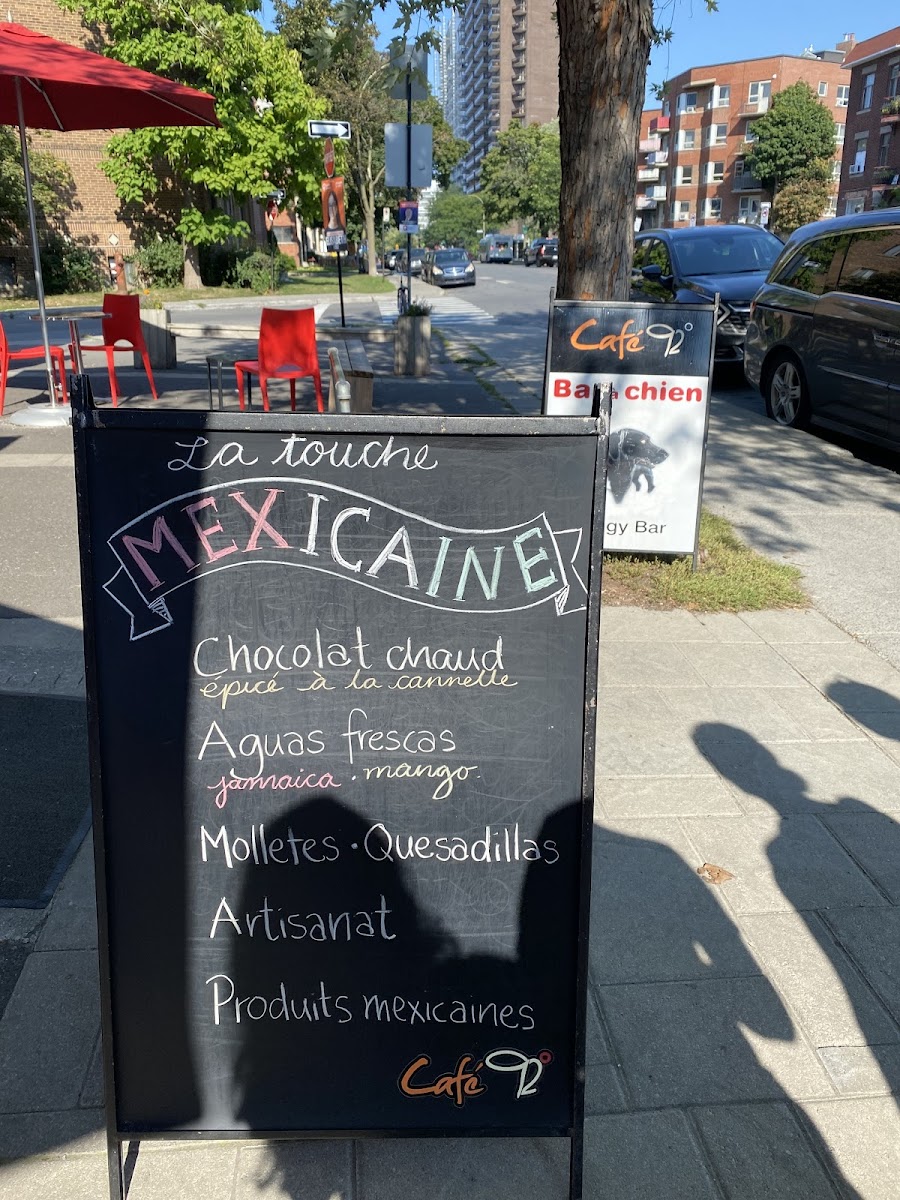 La touche
MEXICAINE
Chocolat chaud
épicé à la cannelle
Aguas frescas
jamaica · mango
Molletes · Quesadillas
Artisanat
Produits mexicaines
Café 92°
Café 92°
chien
Bar